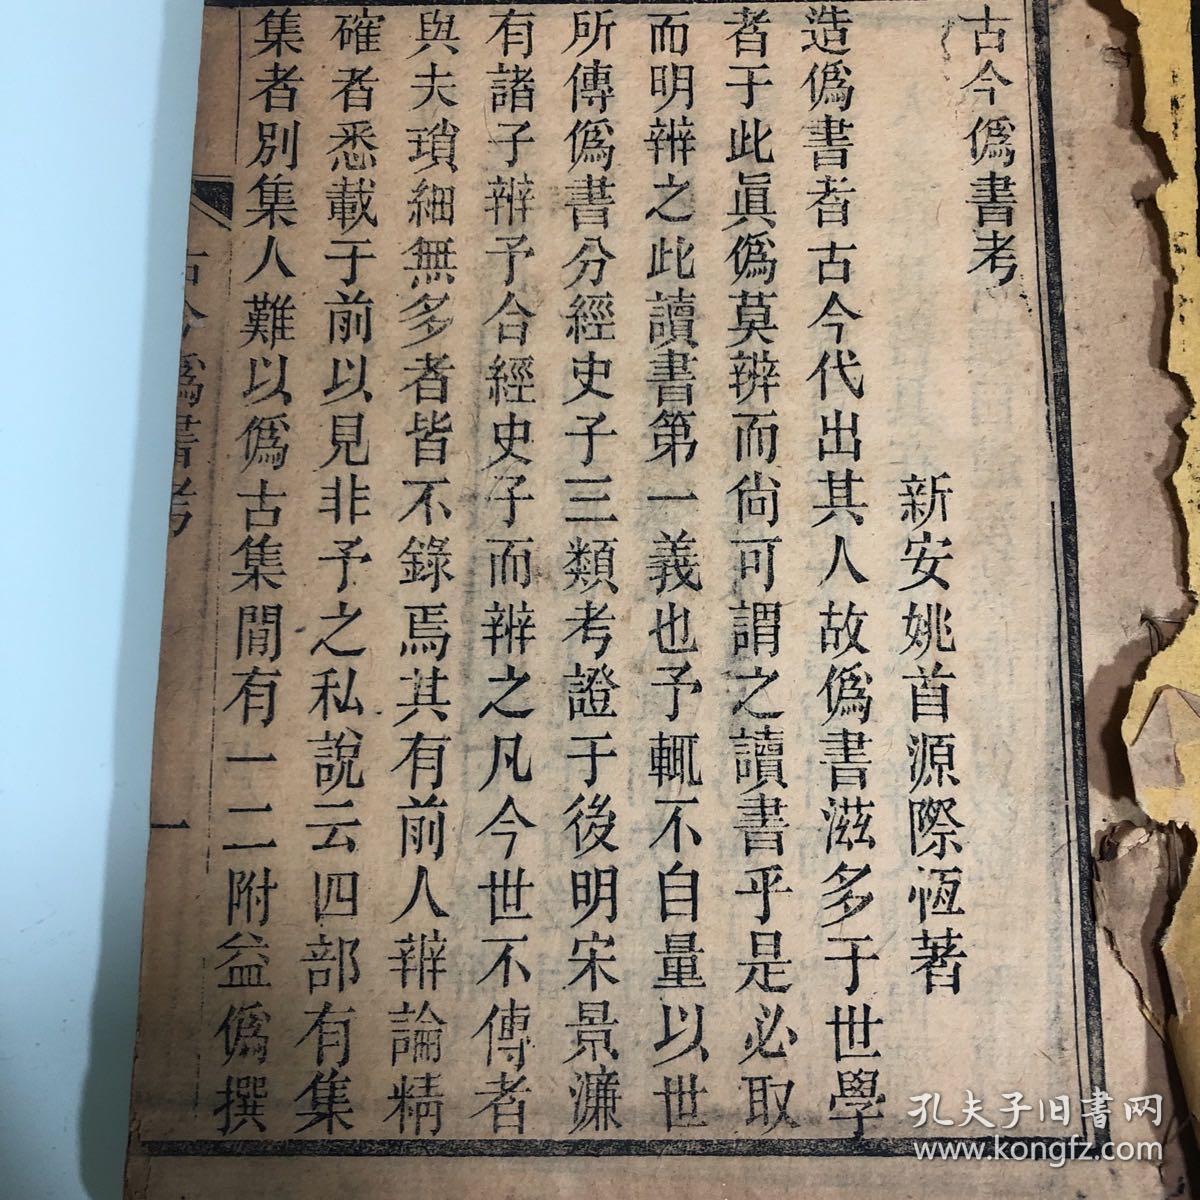 古今僞書考
新安姚首源際恆著
造僞書者古今代出其人故僞書滋多于世學
者于此眞僞莫辨而尙可謂之讀書乎是必取
而明辨之此讀書第一義也予輒不自量以世
所傳僞書分經史子三類考證于後明宋景濂
有諸子辨予合經史子而辨之凡今世不傳者
與夫瑣細無多者皆不錄焉其有前人辨論精
確者悉載于前以見非予之私說云四部有集
集者別集人難以僞古集閒有一二附益僞撰
古今僞書考
一
孔夫子旧書网
www.kongfz.com